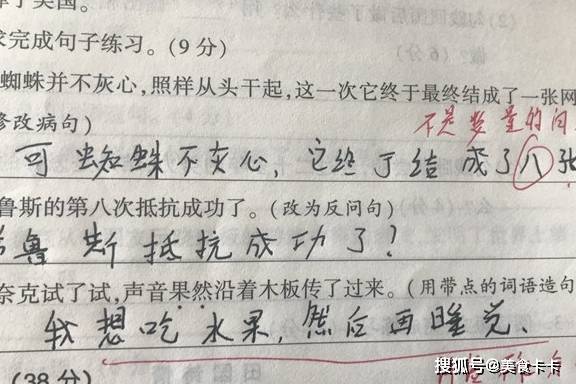 了美国。
求完成句子练习。(9分)
蜘蛛并不灰心,照样从头干起,这一次它终于最终结成了一张网
修改病句)
不是数量的问
可蜘蛛不灰心,它终于结成了八张
鲁斯的第八次抵抗成功了。(改为反问句)
鲁斯抵抗成功了?
奈克试了试,声音果然沿着木板传了过来。(用带点的词语造句
我想吃水果,然后再睡觉、
(38分)
搜狐号@美食卡卡